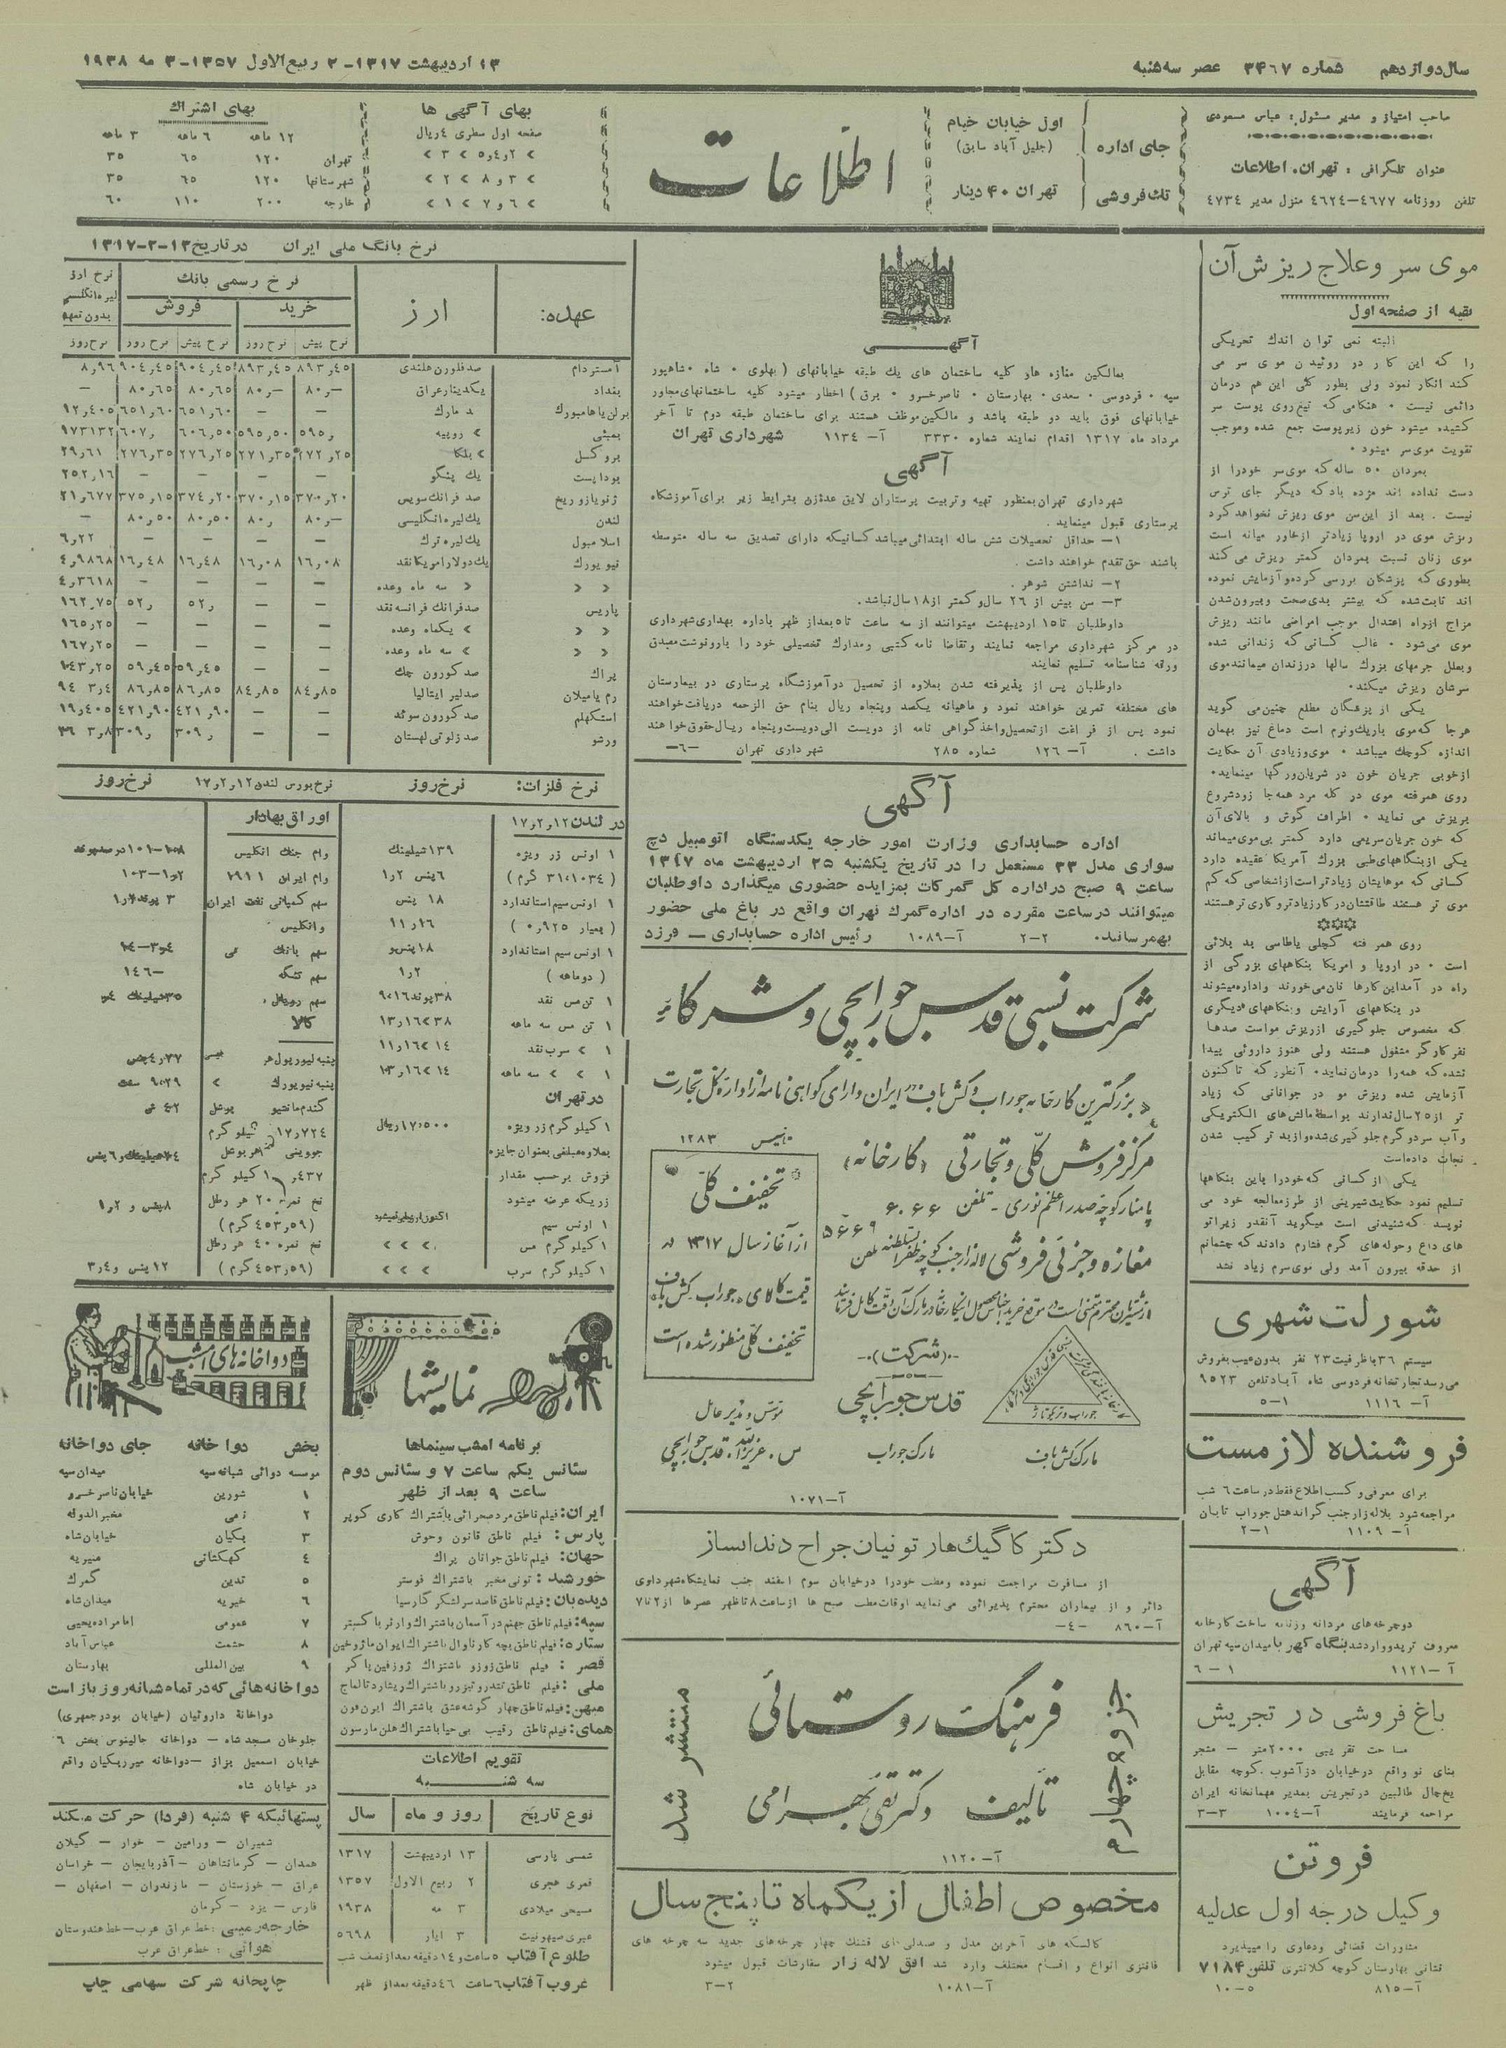 سال دوازدهم شماره ۳۴۶۷ عصر سه شنبه
۱۳ اردیبهشت ۱۳۱۷ - ۲ ربیع الاول ۱۳۵۷ - ۳ مه ۱۹۳۸
صاحب امتیاز و مدیر مسئول: عباس مسعودی
عنوان تلگرافی: تهران، اطلاعات
تلفن روزنامه ۴۶۷۷-۴۶۲۴ منزل مدیر ۴۷۳۴
جای اداره
اول خیابان خیام
(جلیل آباد سابق)
تك فروشی
تهران ۴۰ دینار
اطلاعات
بهای آگهی ها
صفحه اول سطری ۴ ریال
بهای اشتراك
۱۲ ماهه ۶ ماهه ۳ ماهه
تهران ۱۲۰ ۶۵ ۳۵
شهرستانها ۱۲۰ ۶۵ ۳۵
خارجه ۲۰۰ ۱۱۰ ۶۰
موی سر و علاج ریزش آن
بقیه از صفحه اول
البته نمی توان اندك تحریکی
را که این کار در روئیدن موی سر می
کند انکار نمود ولی بطور کلی این هم درمان
دائمی نیست ۰ هنگامی که تیغ روی پوست سر
کشیده میشود خون زیر پوست جمع شده و موجب
تقویت موی سر میشود ۰
بمردان ۵۰ ساله که موی سر خود را از
دست نداده اند مژده باد که دیگر جای ترس
نیست . بعد از این سن موی ریزش نخواهد کرد
ریزش موی در اروپا زیادتر از خاور میانه است
موی زنان نسبت بمردان کمتر ریزش می کند
بطوری که پزشکان بررسی کرده و آزمایش نموده
اند ثابت شده که بیشتر بدی صحت و بیرون شدن
مزاج از راه اعتدال موجب امراضی مانند ریزش
موی می شود ۰ غالب کسانی که زندانی شده
و بعلل جرمهای بزرك سالها در زندان میمانند موی
سرشان ریزش میکند۰
یکی از پزشکان مطلع چنین می گوید
هر جا که موی باریك و نرم است دماغ نیز بهمان
اندازه کوچك میباشد ۰ موی زیادی آن حکایت
از خوبی جریان خون در شریان و رگها مینماید۰
روی همرفته موی در کله مرد همه جا زود شروع
بریزش می نماید ۰ اطراف گوش و بالای آن
که خون جریان سریعی دارد کمتر بی موی میماند
یکی از بنگاههای طبی بزرك آمریکا عقیده دارد
کسانی که موهایشان زیادتر است از اشخاصی که کم
موی تر هستند طاقتشان در کار زیادتر و کاری تر هستند
روی همر فته کچلی یا طاسی بد بلائی
است ۰ در اروپا و امریکا بنگاههای بزرگی از
راه در آمد این کارها نان می خورند و اداره میشوند
در بنگاههای آرایش و بنگاههای دیگری
که مخصوص جلوگیری از ریزش مو است صدها
نفر کارگر مشغول هستند ولی هنوز داروئی پیدا
نشده که همه را درمان نماید۰ آنطور که تا کنون
آزمایش شده ریزش مو در جوانانی که زیاد
تر از ۲۵ سال ندارند بواسطه مالش های الکتریکی
و آب سرد و گرم جلوگیری شده و از بد ترکیب شدن
نجات داده است
یکی از کسانی که خود را باین بنگاهها
تسلیم نمود حکایت شیرینی از طرز معالجه خود می
نویسد که شنیدنی است میگوید آنقدر زیر اتو
های داغ و حوله های گرم فشارم دادند که چشمانم
از حدقه بیرون آمد ولی موی سرم زیاد نشد
شورلت شهری
سیستم ۳۶ با ظرفیت ۲۳ نفر بدون عیب بفروش
می رسد تجارتخانه فردوسی شاه آباد تلفن ۹۵۲۳
آ- ۱۱۱۶ ۱-۵
فروشنده لازمست
برای معرفی و کسب اطلاع فقط در ساعت ۶ شب
مراجعه شود بلاله زار جنب گراند هتل جوراب تابان
آ- ۱۱۰۹ ۱-۲
آگهی
دوچرخه های مردانه و زنانه ساخت کارخانه
معروف تریدو وارد شد بنگاه کهربا میدان سپه تهران
آ-۱۱۲۱ ۱-۶
باغ فروشی در تجریش
مساحت تقریبی ۲۰۰۰ متر - مشجر
بنای نو واقع در خیابان دزآشوب. کوچه مقابل
یخچال طالبین در تجریش بمدیر مهمانخانه ایران
مراجعه فرمایند آ-۱۰۰۴ ۳-۳
فروتن
وکیل درجه اول عدلیه
مشاورات قضائی و دعاوی را میپذیرد
نشانی بهارستان کوچه کلانتری تلفن ۷۱۸۴
آ-۸۱۵ ۵-۱۰
آگهی
بمالکین مغازه ها و کلیه ساختمان های یك طبقه خیابانهای (پهلوی ۰ شاه ۰ شاهپور
سپه ۰ فردوسی ۰ سعدی ۰ بهارستان ۰ ناصر خسرو ۰ برق) اخطار میشود کلیه ساختمانهای مجاور
خیابانهای فوق باید دو طبقه باشد و مالکین موظف هستند برای ساختمان طبقه دوم تا آخر
مرداد ماه ۱۳۱۷ اقدام نمایند شماره ۳۳۳۰ آ- ۱۱۳۴ شهرداری تهران
آگهی
شهرداری تهران بمنظور تهیه و تربیت پرستاران لایق عده زن بشرایط زیر برای آموزشگاه
پرستاری قبول مینماید.
۱- حداقل تحصیلات شش ساله ابتدائی میباشد کسانیکه دارای تصدیق سه ساله متوسطه
باشند حق تقدم خواهند داشت .
۲- نداشتن شوهر .
۳- سن بیش از ۲۶ سال و کمتر از ۱۸ سال نباشد.
داوطلبان تا ۱۵ اردیبهشت میتوانند از سه ساعت تا ۵ بعد از ظهر باداره بهداری شهرداری
در مرکز شهرداری مراجعه نمایند و تقاضا نامه کتبی و مدارك تحصیلی خود را با رونوشت مصدق
ورقه شناسنامه تسلیم نمایند
داوطلبان پس از پذیرفته شدن بعلاوه از تحصیل در آموزشگاه پرستاری در بیمارستان
های مختلفه تمرین خواهند نمود و ماهیانه یکصد و پنجاه ریال بنام حق الزحمه دریافت خواهند
نمود پس از فراغت از تحصیل و اخذ گواهی نامه از دویست الی دویست و پنجاه ریال حقوق خواهند
داشت . آ- ۱۲۶ شماره ۲۸۵ شهرداری تهران -۶-
آگهی
اداره حسابداری وزارت امور خارجه یکدستگاه اتومبیل دج
سواری مدل ۳۳ مستعمل را در تاریخ یکشنبه ۲۵ اردیبهشت ماه ۱۳۱۷
ساعت ۹ صبح در اداره کل گمرکات بمزایده حضوری میگذارد داوطلبان
میتوانند در ساعت مقرره در اداره گمرك تهران واقع در باغ ملی حضور
بهمرسانند۰ ۲-۲ آ-۱۰۸۹ رئیس اداره حسابداری - فرزد
شرکت نسبی قدس جورابچی و شرکاء
بزرگترین کارخانه جوراب و کش باف در ایران دارای گواهی نامه از اداره کل تجارت
مرکز فروش کلی و تجارتی (کارخانه)
پامنار کوچه صدراعظم نوری - تلفن ۶۰۶۶
مغازه و جزئی فروشی لاله زار جنب کوچه ظفر السلطنه تلفن ۵۶۶۹
تاسیس ۱۲۸۳
تخفیف کلی
از آغاز سال ۱۳۱۷ در
قیمت کالای جوراب کش باف
تخفیف کلی منظور شده است
(شرکت)
قدس جورابچی
جوراب و تریکوتاژ
مارك کش باف
مارك جوراب
موسس و مدیر عامل
س. عزیزالله قدس جورابچی
آ-۱۰۷۱
دکتر کاگیك هارتونیان جراح دندانساز
از مسافرت مراجعت نموده و مطب خود را در خیابان سوم اسفند جنب نمایشگاه شهرداری
دائر و از بیماران محترم پذیرائی می نماید اوقات مطب صبح ها از ساعت ۸ تا ظهر عصرها از ۲ تا ۷
آ-۸۶۰ -۴-
جزوه چهارم
فرهنگ روستائی
تألیف دکتر تقی بهرامی
منتشر شد
آ-۱۱۲۰
مخصوص اطفال از یکماه تا پنج سال
کالسکه های آخرین مدل و صندلی ای قشنك چهار چرخه های جدید سه چرخه های
فانتزی انواع و اقسام مختلف وارد شد افق لاله زار سفارشات قبول میشود
آ-۱۰۸۱ ۲-۳
نرخ بانك ملی ایران در تاریخ ۱۳-۲-۱۳۱۷
عهده: ارز نرخ رسمی بانك
خرید فروش
نرخ پیش نرخ روز نرخ پیش نرخ روز نرخ روز
آمستردام صد فلورن هلندی ۸۹۳٫۴۵ ۸۹۳٫۴۵ ۹۰۴٫۴۵ ۹۰۴٫۴۵ ۸٫۹۶
بغداد یکدینار عراق ۸۰٫- ۸۰٫- ۸۰٫۶۵ ۸۰٫۶۵ -
برلن یا هامبورك د مارك - - ۶۵۱٫۶۰ ۶۵۱٫۶۰ ۱۲٫۴۰۵
بمبئی » روپیه ۵۹۵٫ ۵۹۵٫۵۰ ۶۰۶٫۵۰ ۶۰۷٫
بروکسل » بلکا ۲۷۲٫۲۵ ۲۷۱٫۳۵ ۲۷۶٫۲۵ ۲۷۶٫۳۵ ۲۹٫۶۱
بوداپست یك پنگو ۲۵٫۱۶
ژنو یا زوریخ صد فرانك سویس ۳۷۰٫۲۰ ۳۷۰٫۱۵ ۳۷۴٫۲۰ ۳۷۵٫۱۵ ۲۱٫۶۷۷
لندن یك لیره انگلیسی ۸۰٫- ۸۰٫ ۸۰٫۵۰ ۸۰٫۵۰ -
اسلامبول یك لیره ترك - - - - ۶٫۲۲
نیویورك یك دولار امریکا نقد ۱۶٫۰۸ ۱۶٫۰۸ ۱۶٫۴۸ ۱۶٫۴۸ ۴٫۹۸۶۸
« « سه ماه وعده - - - - ۴٫۳۶۱۸
پاریس صد فرانك فرانسه نقد - - ۵۲٫ ۵۲٫ ۱۶۲٫۷۵
« « یکماه وعده - - - - ۱۶۵٫۲۵
« « سه ماه وعده - - - - ۱۶۷٫۲۵
پراك صد کورون چك - - ۵۹٫۴۵ ۵۹٫۴۵ ۱۴۳٫۲۵
رم یا میلان صد لیر ایتالیا ۸۴٫۸۵ ۸۴٫۸۵ ۸۶٫۸۵ ۸۶٫۸۵
استکهلم صد کورون سوئد - - ۴۲۱٫۹۰ ۴۲۱٫۹۰ ۱۹٫۴۰۵
ورشو صد زلوتی لهستان - - ۳۰۹٫ ۳۰۹٫
نرخ فلزات: نرخ روز
در لندن ۱۷٫۲٫۱۲
۱ اونس زر ویژه ۱۳۹ شیلینك
(۳۱٫۱۰۳۴ گرم) ۶ پنس ۱٫۲
۱ اونس سیم استاندارد ۱۸ پنس
(بعیار ۰٫۹۲۵) ۱۱٫۱۶
۱ اونس سیم استاندارد ۱۸ پنس و
(دوماهه) ۱٫۲
۱ تن مس نقد ۳۸ پوند ۹٫۱۶
۱ تن مس سه ماهه ۳۸ » ۱۳٫۱۶
۱ » سرب نقد ۱۴ » ۱۱٫۱۶
۱ » » سه ماهه ۱۴ » ۱۳٫۱۶
در تهران
۱ کیلوگرم زر ویژه ۱۷٫۵۰۰ ریال
بعلاوه مبلغی بعنوان جایزه
فزوش برحسب مقدار
زریکه عرضه میشود
۱ اونس سیم
۱ کیلوگرم مس » » »
۱ کیلوگرم سرب » » »
نرخ بورس لندن ۱۷٫۲٫۱۲ نرخ روز
اوراق بهادار
وام جنك انگلیس
وام ایران ۱۹۱۱
سهم کمپانی نفت ایران
و انگلیس
سهم بانك
سهم رویال
کالا
پنبه لیورپول هر
پنبه نیویورك »
گندم مانتیو بوشل
۱۷٫۷۲۴ کیلو گرم
جو وینی هر بوشل
نخ نمره ۲۰ هر رطل ۸ پنس و ۱٫۲
(۴۵۳٫۵۹ گرم)
نخ نمره ۴۰ هر رطل
(۴۵۳٫۵۹ گرم) ۱۲ پنس و ۳٫۴
نمایشها
برنامه امشب سینماها
سئانس یکم ساعت ۷ و سئانس دوم
ساعت ۹ بعد از ظهر
ایران: فیلم ناطق مرد صحرائی باشتراك کاری کوپر
پارس: فیلم ناطق قانون وحوش
جهان: فیلم ناطق جوانان پراك
خورشید: تونی مخبر باشتراك فوستر
دیده بان: فیلم ناطق قاصد سر لشکر کارسیا
سپه: فیلم ناطق جهنم در آسمان باشتراك وارنر باکستر
ستاره: فیلم ناطق بچه کارناوال باشتراك ایوان ماژوخین
قصر: فیلم ناطق زوزو باشتراك ژوزفین باکر
ملی: فیلم ناطق تندر و تبزرو باشتراك ریشارد تالماج
میهن: فیلم ناطق چهار گوشه عشق باشتراك ایون فون
همای: فیلم ناطق رقیب بی حیا باشتراك هلن مارسون
تقویم اطلاعات
سه شنبه
نوع تاریخ روز و ماه سال
شمسی پارسی ۱۳ اردیبهشت ۱۳۱۷
قمری هجری ۲ ربیع الاول ۱۳۵۷
مسیحی میلادی ۳ مه ۱۹۳۸
عبری صیهونیت ۳ ایار ۵۶۹۸
طلوع آفتاب ۵ ساعت و ۱۴ دقیقه بعد از نصف شب
غروب آفتاب ۶ ساعت ۴۶ دقیقه بعد از ظهر
دواخانه های امشب
بخش دواخانه جای دواخانه
موسسه دوائی شبانه سپه میدان سپه
۱ شورین خیابان ناصر خسرو
۲ نمی مخبرالدوله
۳ پیکیان خیابان شاه
۴ کهکشانی منیریه
۵ تدین گمرك
۶ خیریه میدان شاه
۷ عمومی امامزاده یحیی
۸ حشمت عباس آباد
۹ بین المللی بهارستان
دواخانه هائی که در تمام شبانه روز باز است
دواخانۀ داروئیان (خیابان بوذرجمهری)
جلوخان مسجد شاه - دواخانه جالینوس بخش ۶
خیابان اسمعیل بزاز - دواخانه میرزیکیان واقع
در خیابان شاه
پستهائیکه ۴ شنبه (فردا) حرکت میکند
شمیران - ورامین - خوار - گیلان
همدان - کرمانشاهان - آذربایجان - خراسان
عراق - خوزستان - مازندران - اصفهان -
فارس - یزد - کرمان
خارجه زمینی: خط عراق عرب - خط هندوستان
هوائی: خط عراق عرب
چاپخانه شرکت سهامی چاپ